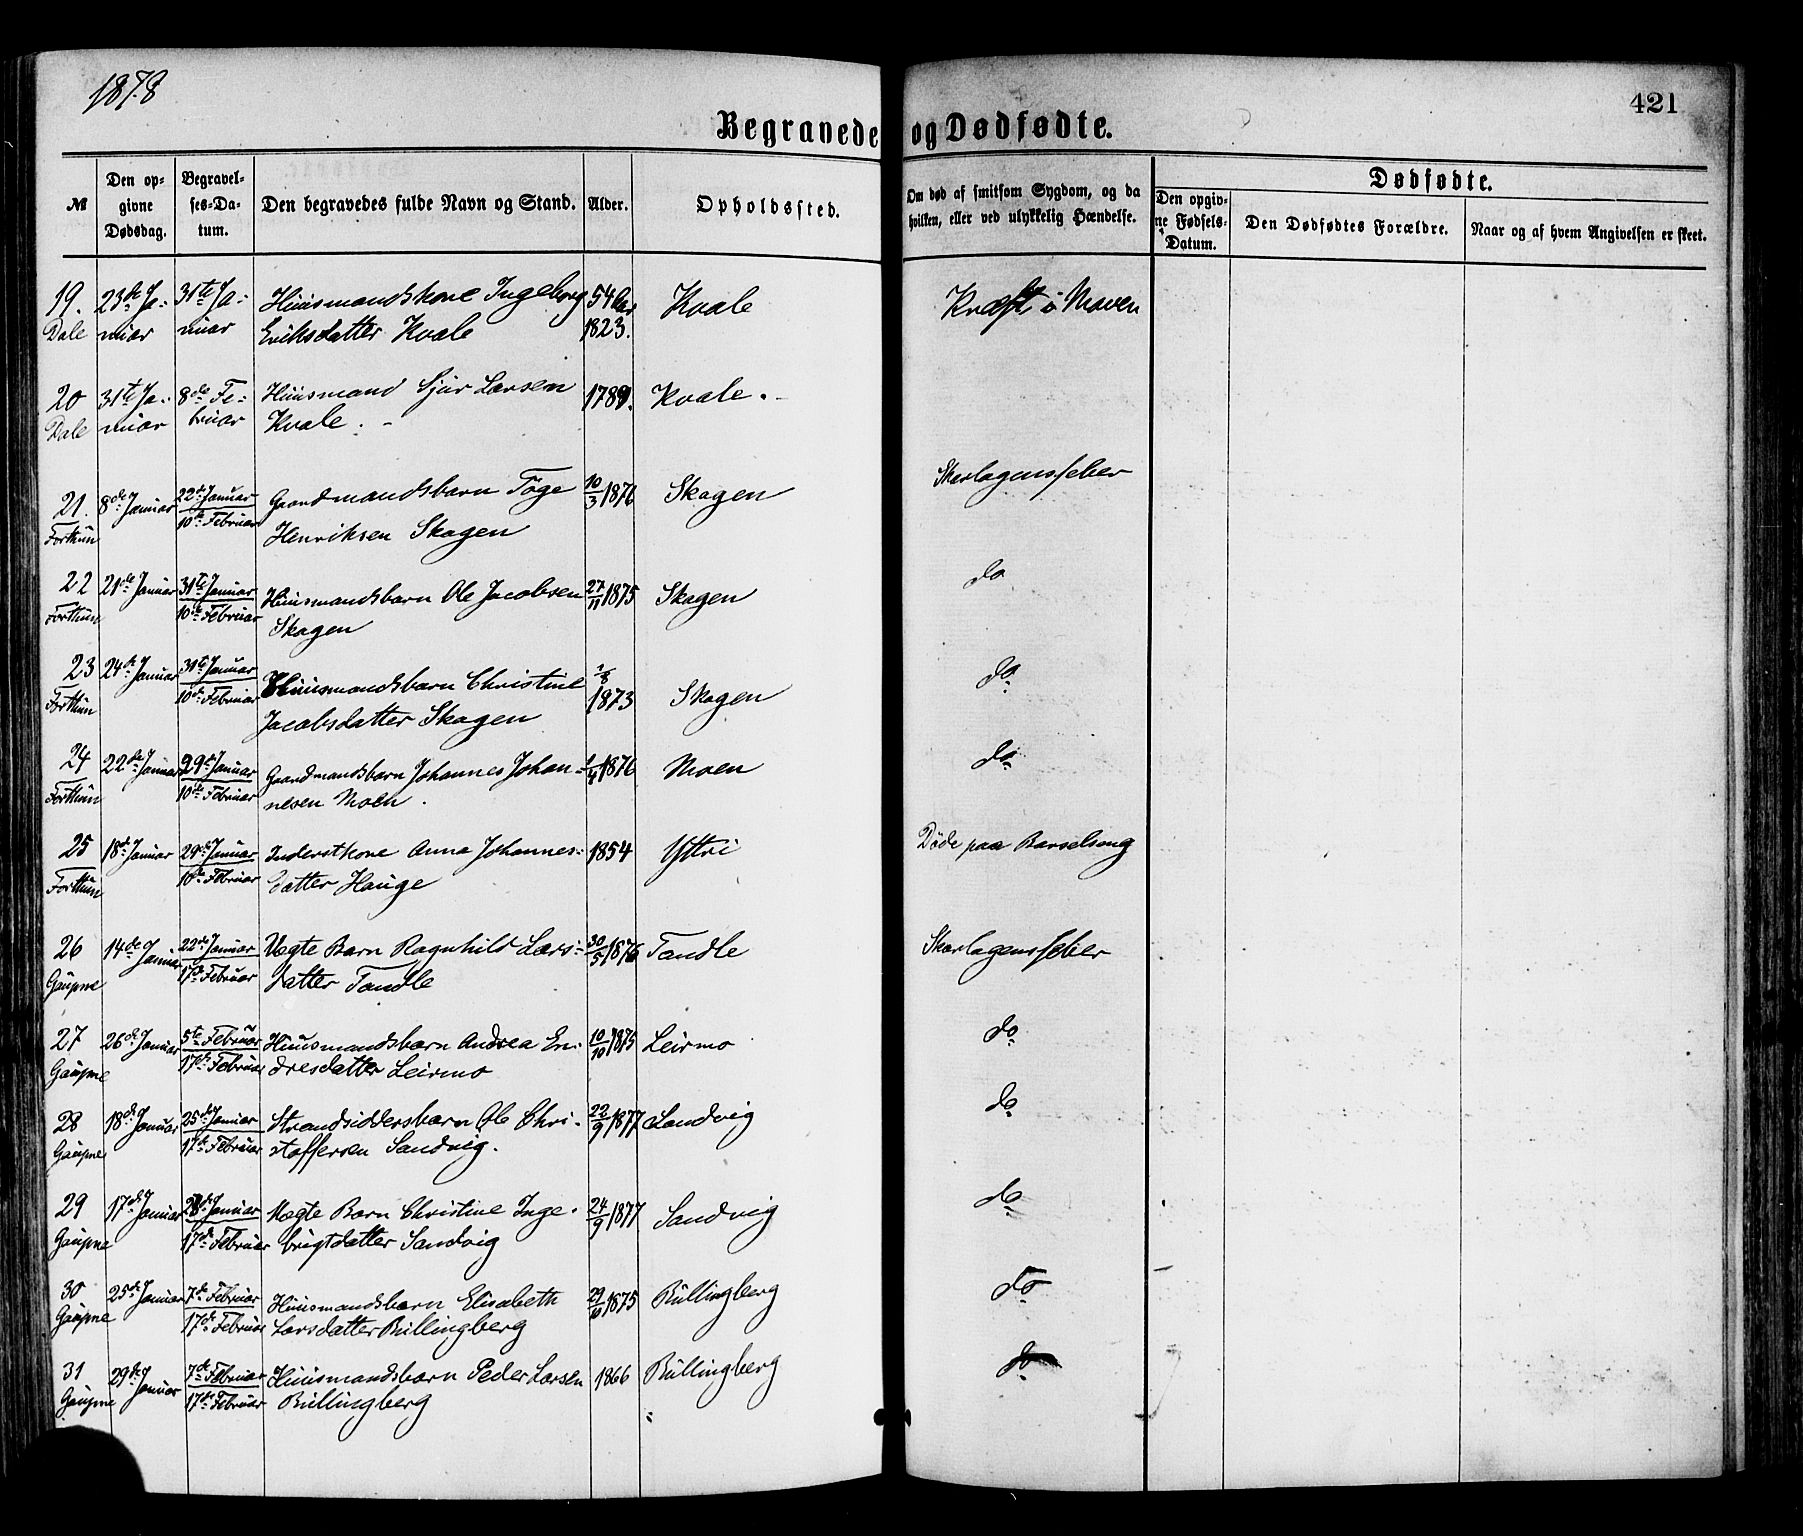 1878
421
Begravede og Dødfødte.
№
Den opgivne Dødsdag.
Begravelses-Datum.
Den begravedes fulde Navn og Stand.
Alder.
Opholdssted.
Om død af smitsom Sygdom, og da hvilken, eller ved ulykkelig Hændelse.
Dødfødte.
Den opgivne Fødsels-Datum.
Den Dødfødtes Forældre.
Naar og af hvem Angivelsen er skeet.
19. 23de Ja- 31te Ja- Huusmandskone Ingeborg 54 Aar Kvale Kræft i Maven
Dale nuar nuar Eriksdatter Kvale 1823.
20 31te Ja- 8de Fe- Huusmand Sjur Larsen 1789. Kvale.
Dale nuar bruar Kvale.
21. 8de Januar 22de Januar Gaardmandsbarn Töge 10/3 1876 Skagen Skarlagensfeber
Forthun 10de Februar Henriksen Skagen
22 21de Januar 31te Januar Huusmandsbarn Ole Jacobsen 27/11 1875 Skagen do
Forthun 10de Februar Skagen
23 24de Januar 31te Januar Huusmandsbarn Christine Skagen do
Forthun 10de Februar Jacobsdatter Skagen 1873
24 22de Januar 29de Januar Gaardmandsbarn Johannes Johan- 1876 Moen do
Forthun 10de Februar nesen Moen.
25 18de Januar 29de Januar Inderstkone Anna Johannes- 1854 Yttri Döde paa Barselseng
Forthun 10de Februar datter Hauge
26 14de Januar 22de Januar Uægte Barn Ragnhild Lars- 30/5 1876 Tandle Skarlagensfeber
Gaupne 17de Februar datter Tandle
27 26de Januar 5te Februar Huusmandsbarn Andrea En- 10/10 1875 Leirmo do
Gaupne 17de Februar dresdatter Leirmo
28 18de Januar 25de Januar Strandsiddersbarn Ole Chri- 22/9 1877 Sandvig do
Gaupne 17de Februar stoffersen Sandvig.
29 17de Januar 28de Januar Uægte Barn Christine Inge- 24/9 1877 Sandvig do
Gaupne 17de Februar brigtdatter Sandvig
30 25de Januar 7de Februar Huusmandsbarn Elisabeth 29/10 1875 Bullingberg do
Gaupne 17de Februar Larsdatter Bullingberg
31 29de Januar 7de Februar Huusmandsbarn Peder Larsen 1866 Bullingberg do
Gaupne 17de Februar Bullingberg